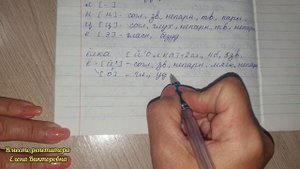 л [ - ]
н [н] - согл., зв., непарн., тв., парн.
ц [ц] - согл., глух., непарн., тв., непарн.
е [э] - гласн., безуд.
ёлка [й'о́лка] - 2 сл., 4 б., 5 зв.
ё - [й'] - согл., зв., непарн., мягк., непарн.
[о] - гл., уд
Вместо репетитора
Елена Викторовна